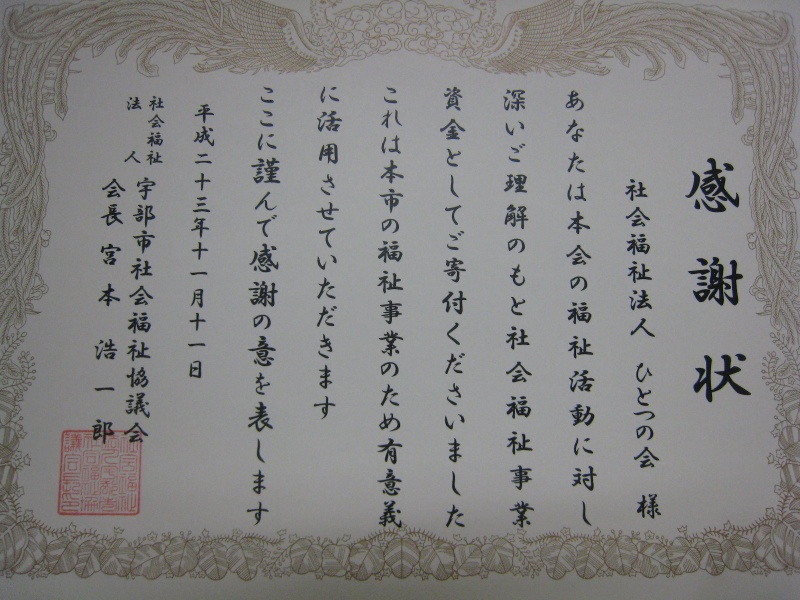 感謝状
社会福祉法人 ひとつの会 様
あなたは本会の福祉活動に対し
深いご理解のもと社会福祉事業
資金としてご寄付くださいました
これは本市の福祉事業のため有意義
に活用させていただきます
ここに謹んで感謝の意を表します
平成二十三年十一月十一日
社会福祉法人 宇部市社会福祉協議会
会長 宮本 浩一郎